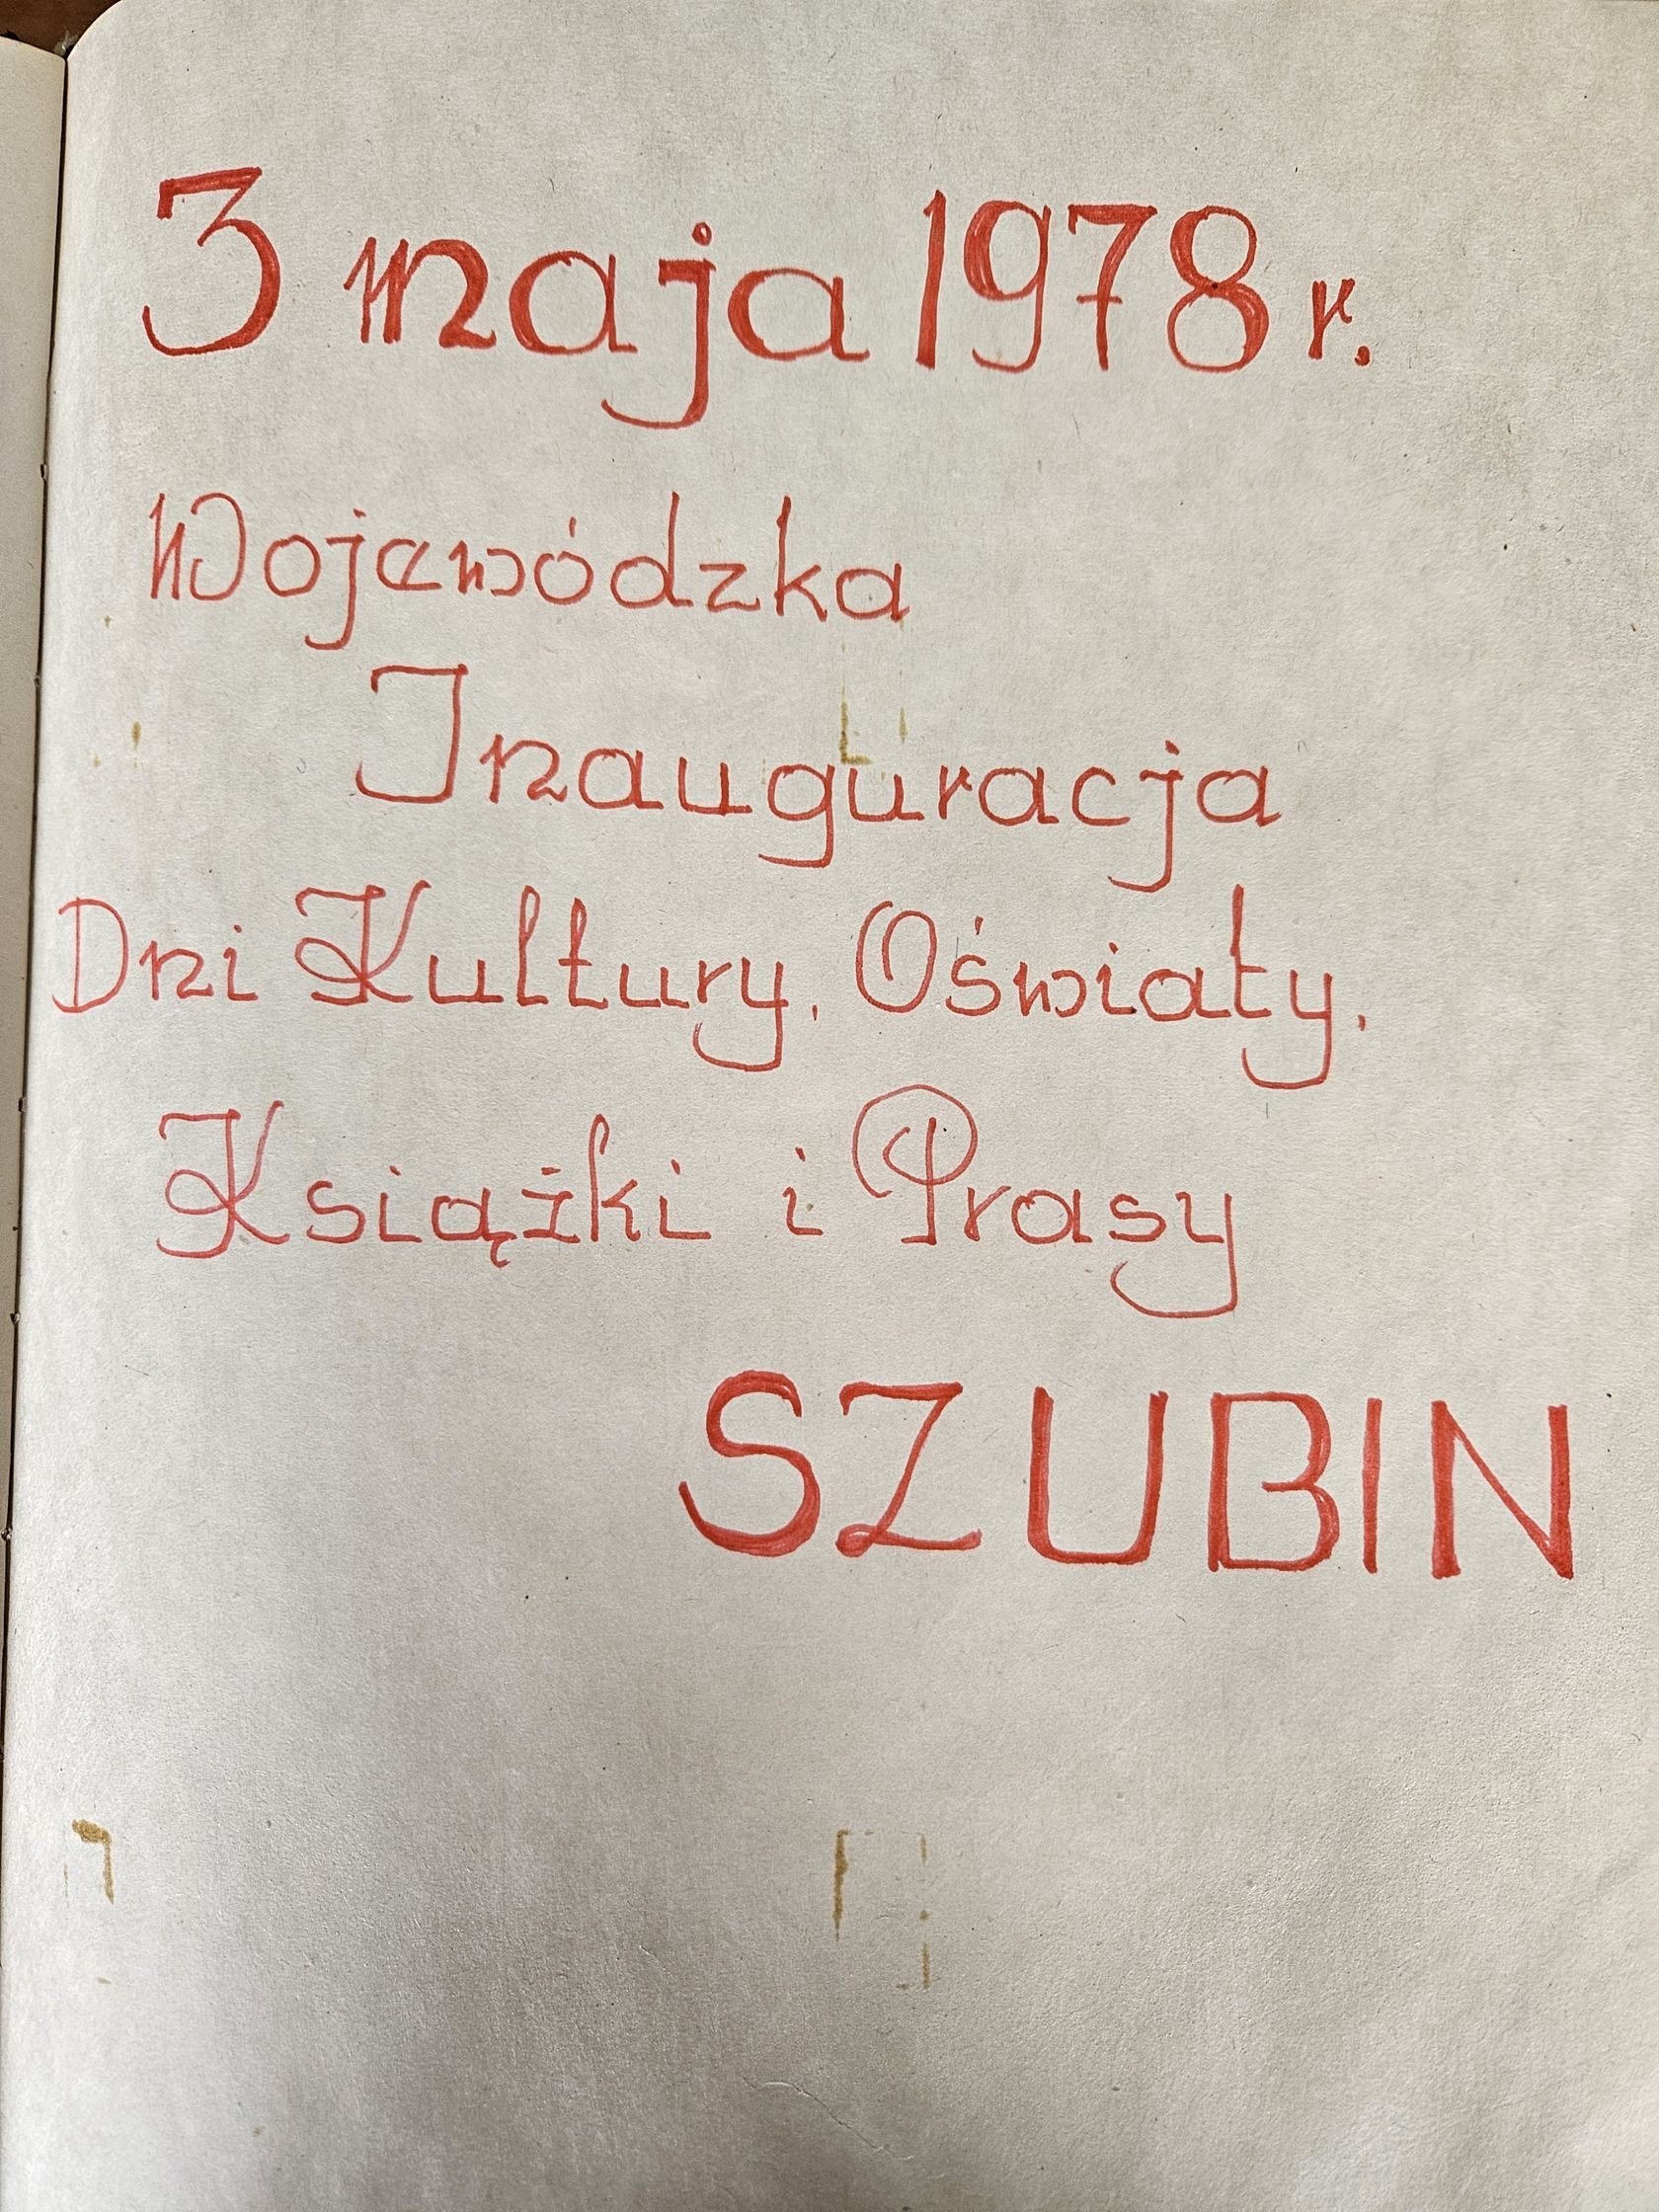 3 maja 1978 r.
Wojewódzka
Inauguracja
Dni Kultury, Oświaty,
Książki i Prasy
SZUBIN